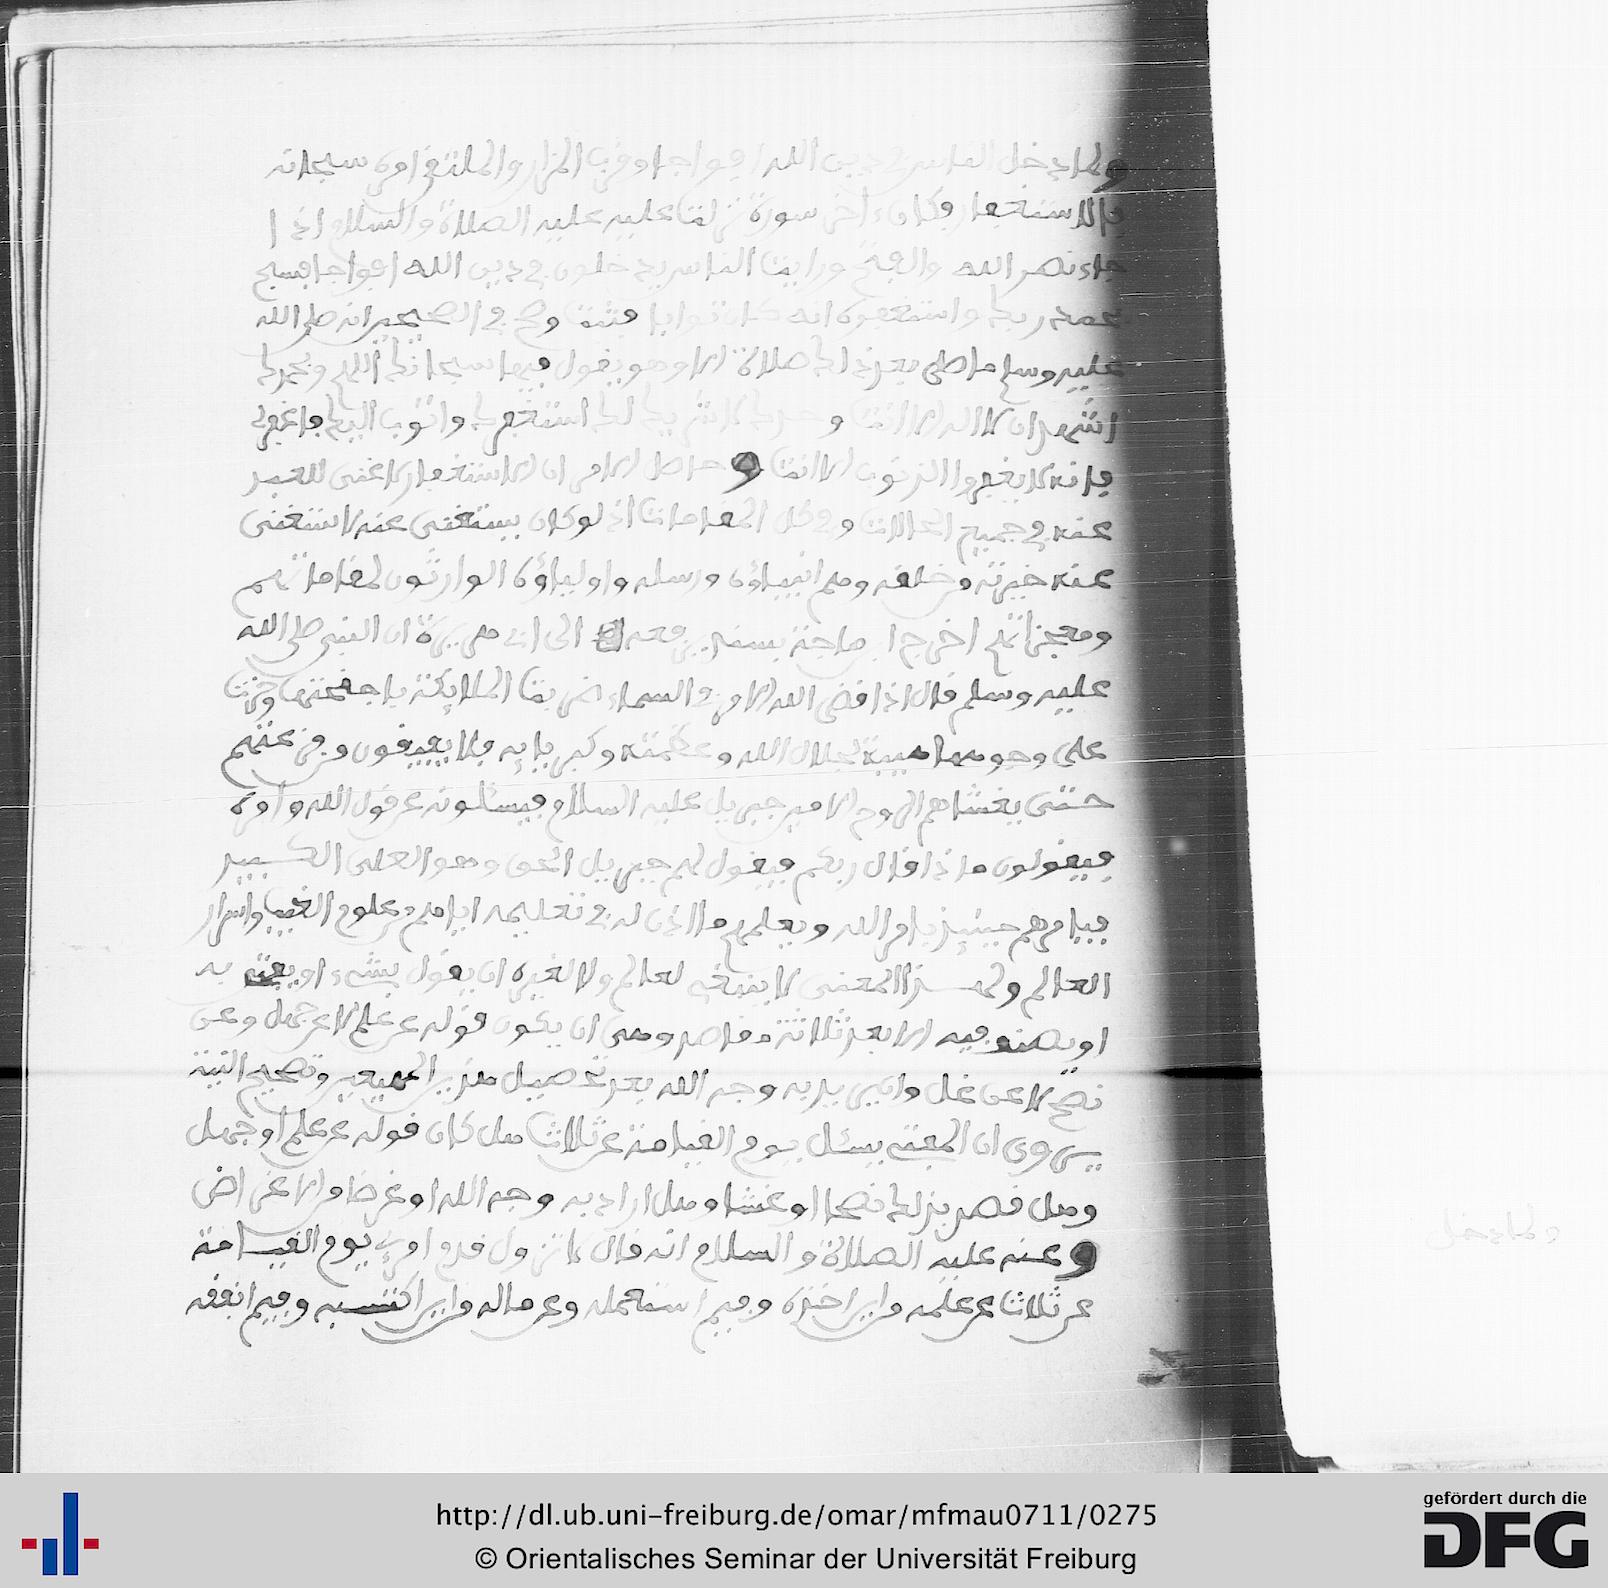 ولما دخل الناس في دين الله افواجا وقرب المزار والملتقى امره سبحانه
بالاستغفار وكان ءاخر سورة نزلت عليه عليه الصلاة والسلام اذا
جاء نصر الله والفتح ورايت الناس يدخلون في دين الله افواجا فسبح
بحمد ربك واستغفره انه كان توابا فثبت وصح في الصحيحين انه صلى الله
عليه وسلم ما صلى بعد ذلك صلاة الا وهو يقول فيها سبحانك اللهم وبحمدك
اشهد ان لا اله الا انت وحدك لا شريك لك استغفرك واتوب اليك فاغفر لي
فانه لا يغفر الذنوب الا انت وحاصل الامر ان الاستغفار لا غنى للعبد
عنه في جميع الحالات وفي كل المقامات اذ لو كان يستغنى عنه لاستغنى
عنه خيرته من خلقه وهم انبياؤه ورسله واولياؤه الوارثون لمقاماتهم
ومعجزاتهم اخرج ابن ماجة بسند يرفعه الى ابي هريرة ان النبي صلى الله
عليه وسلم قال اذا قضى الله الامر في السماء ضربت الملايكة باجنحتها وخرت
على وجوهها هيبة لجلال الله وعظمته وكبريايه فلا يفيقون من غشيتهم
حتى يغشاهم الروح الامين جبريل عليه السلام فيسئلونه عن قول الله وامره
فيقولون ماذا قال ربكم فيقول لهم جبريل الحق وهو العلي الكبير
فيامرهم حينيذ بامر الله ويعلمهم ما اذن له في تعليمه اياهم من علوم الغيب واسرار
العالم ولهذا المعنى لا ينبغي لعالم ولا لغيره ان يقول بشيء او يفتي به
او يصنف فيه الا بعد ثلاثة مقاصد وهي ان يكون قوله عن علم لا عن جهل وعن
نصح لا عن غل وان يريد به وجه الله بعد تحصيل هذين المعنيين وتصحيح النية
يروى ان المفتي يسئل يوم القيامة عن ثلاث هل كان قوله عن علم او جهل
وهل قصد بذلك نصحا او غشا وهل اراد به وجه الله او غرضا من الاغراض
وعنه عليه الصلاة والسلام انه قال لا تزول قدم امرئ يوم القيامة
عن ثلاث عن علمه من اين اخذه وفيم استعمله وعن ماله من اين اكتسبه وفيم انفقه
ولما دخل
http://dl.ub.uni-freiburg.de/omar/mfmau0711/0275
© Orientalisches Seminar der Universität Freiburg
gefördert durch die
DFG